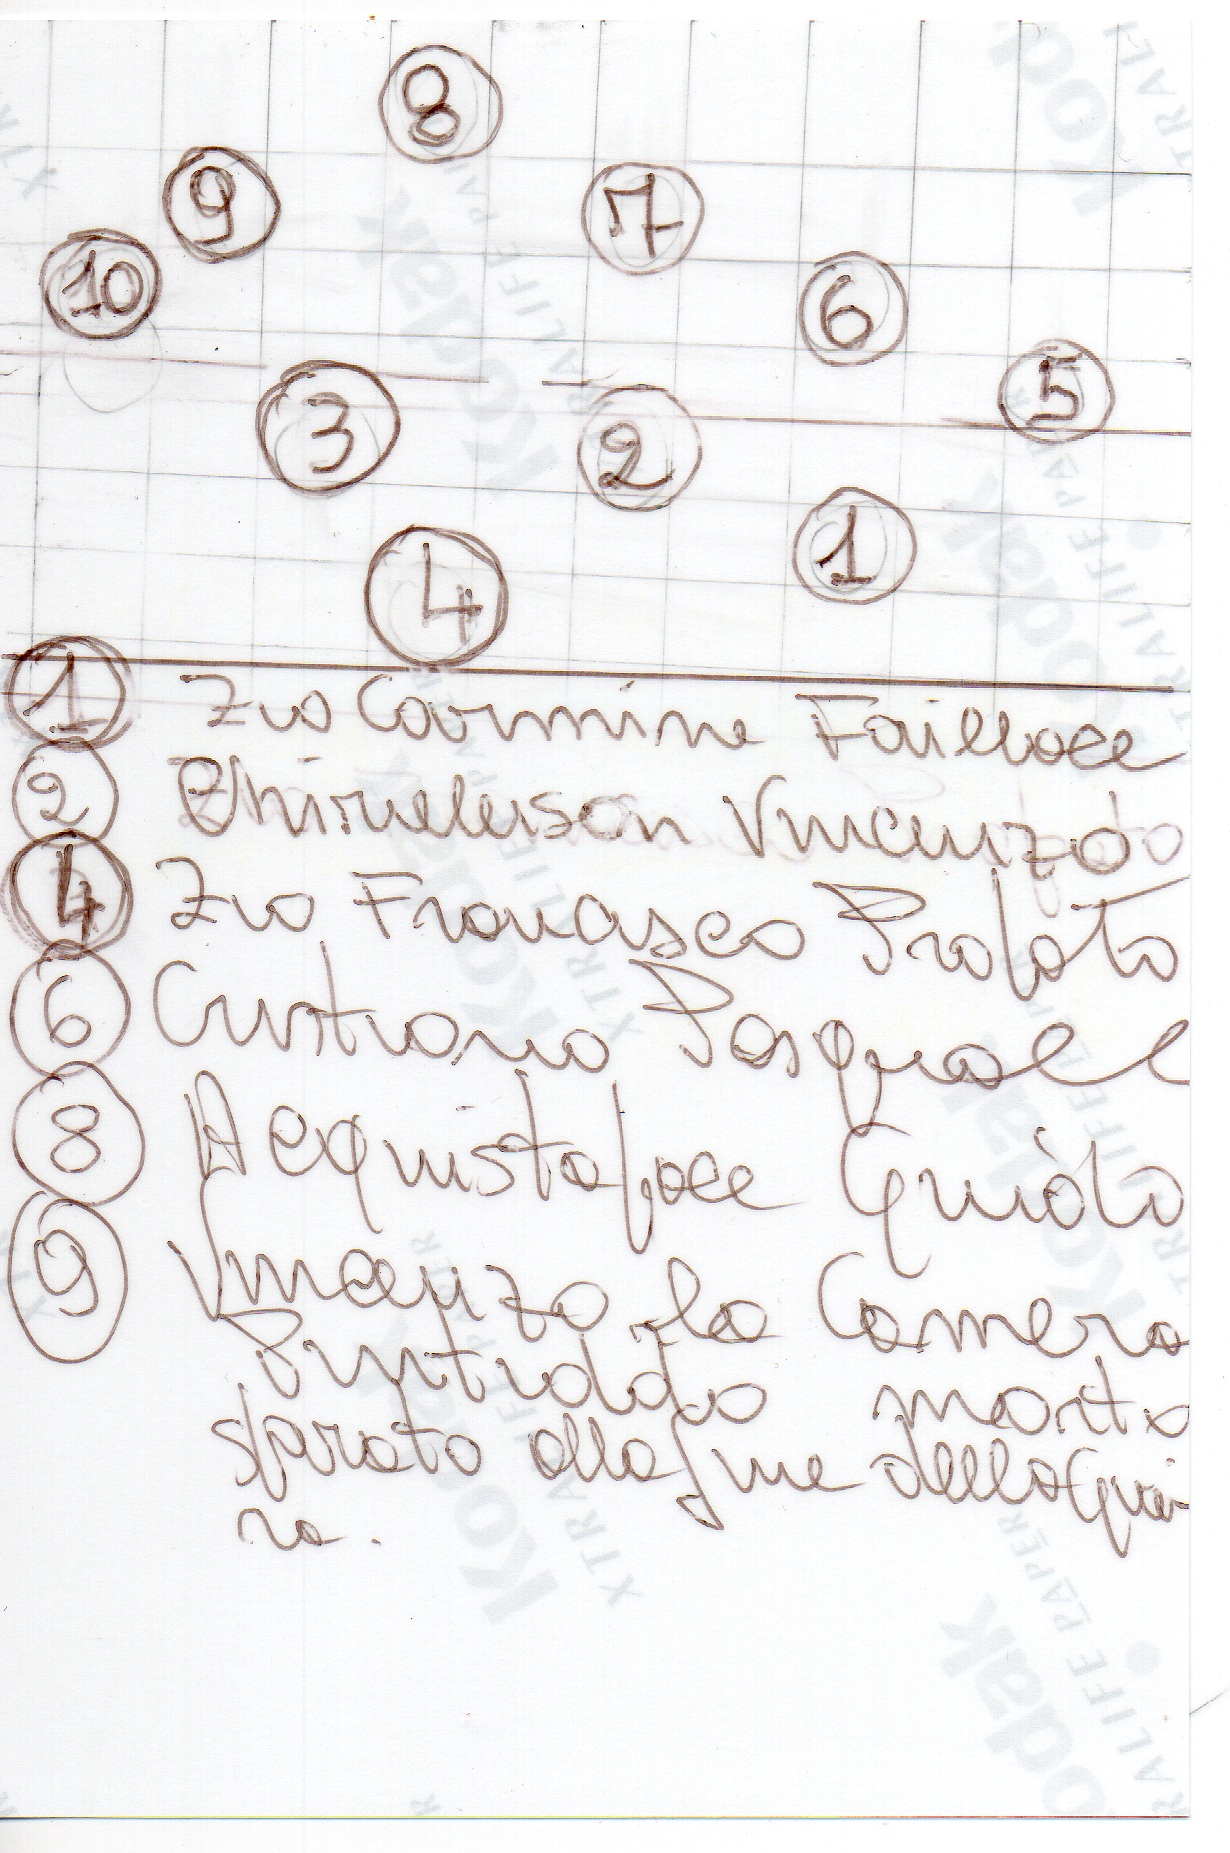 8
9
7
10
6
5
3
2
1
4
1 Zio Carmine Faillace
2 Vincenzo
4 Zio Francesco Profato
6 Cristiano Pasquale
8 Acquistapace Guido
9 Vincenzo La Camera
morto
sparato alla fine della Guer
ra.
Kodak
XTRALIFE PAPER